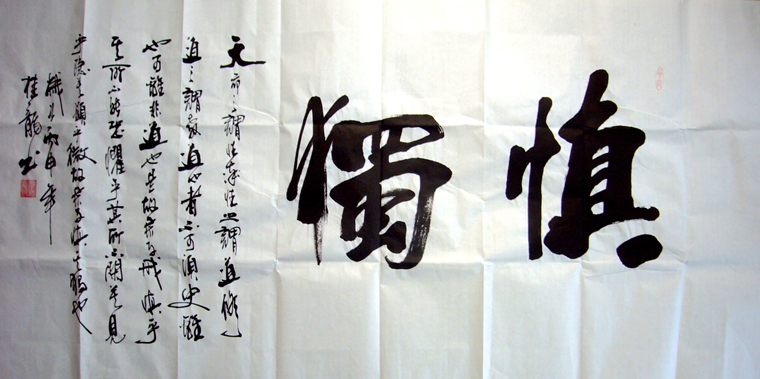 慎獨
天命之謂性率性之謂道修
道之謂教道也者不可須臾離
也可離非道也是故君子戒慎乎
其所不睹恐懼乎其所不聞莫見
乎隱莫顯乎微故君子慎其獨也
歲次丙申年
桂龍書